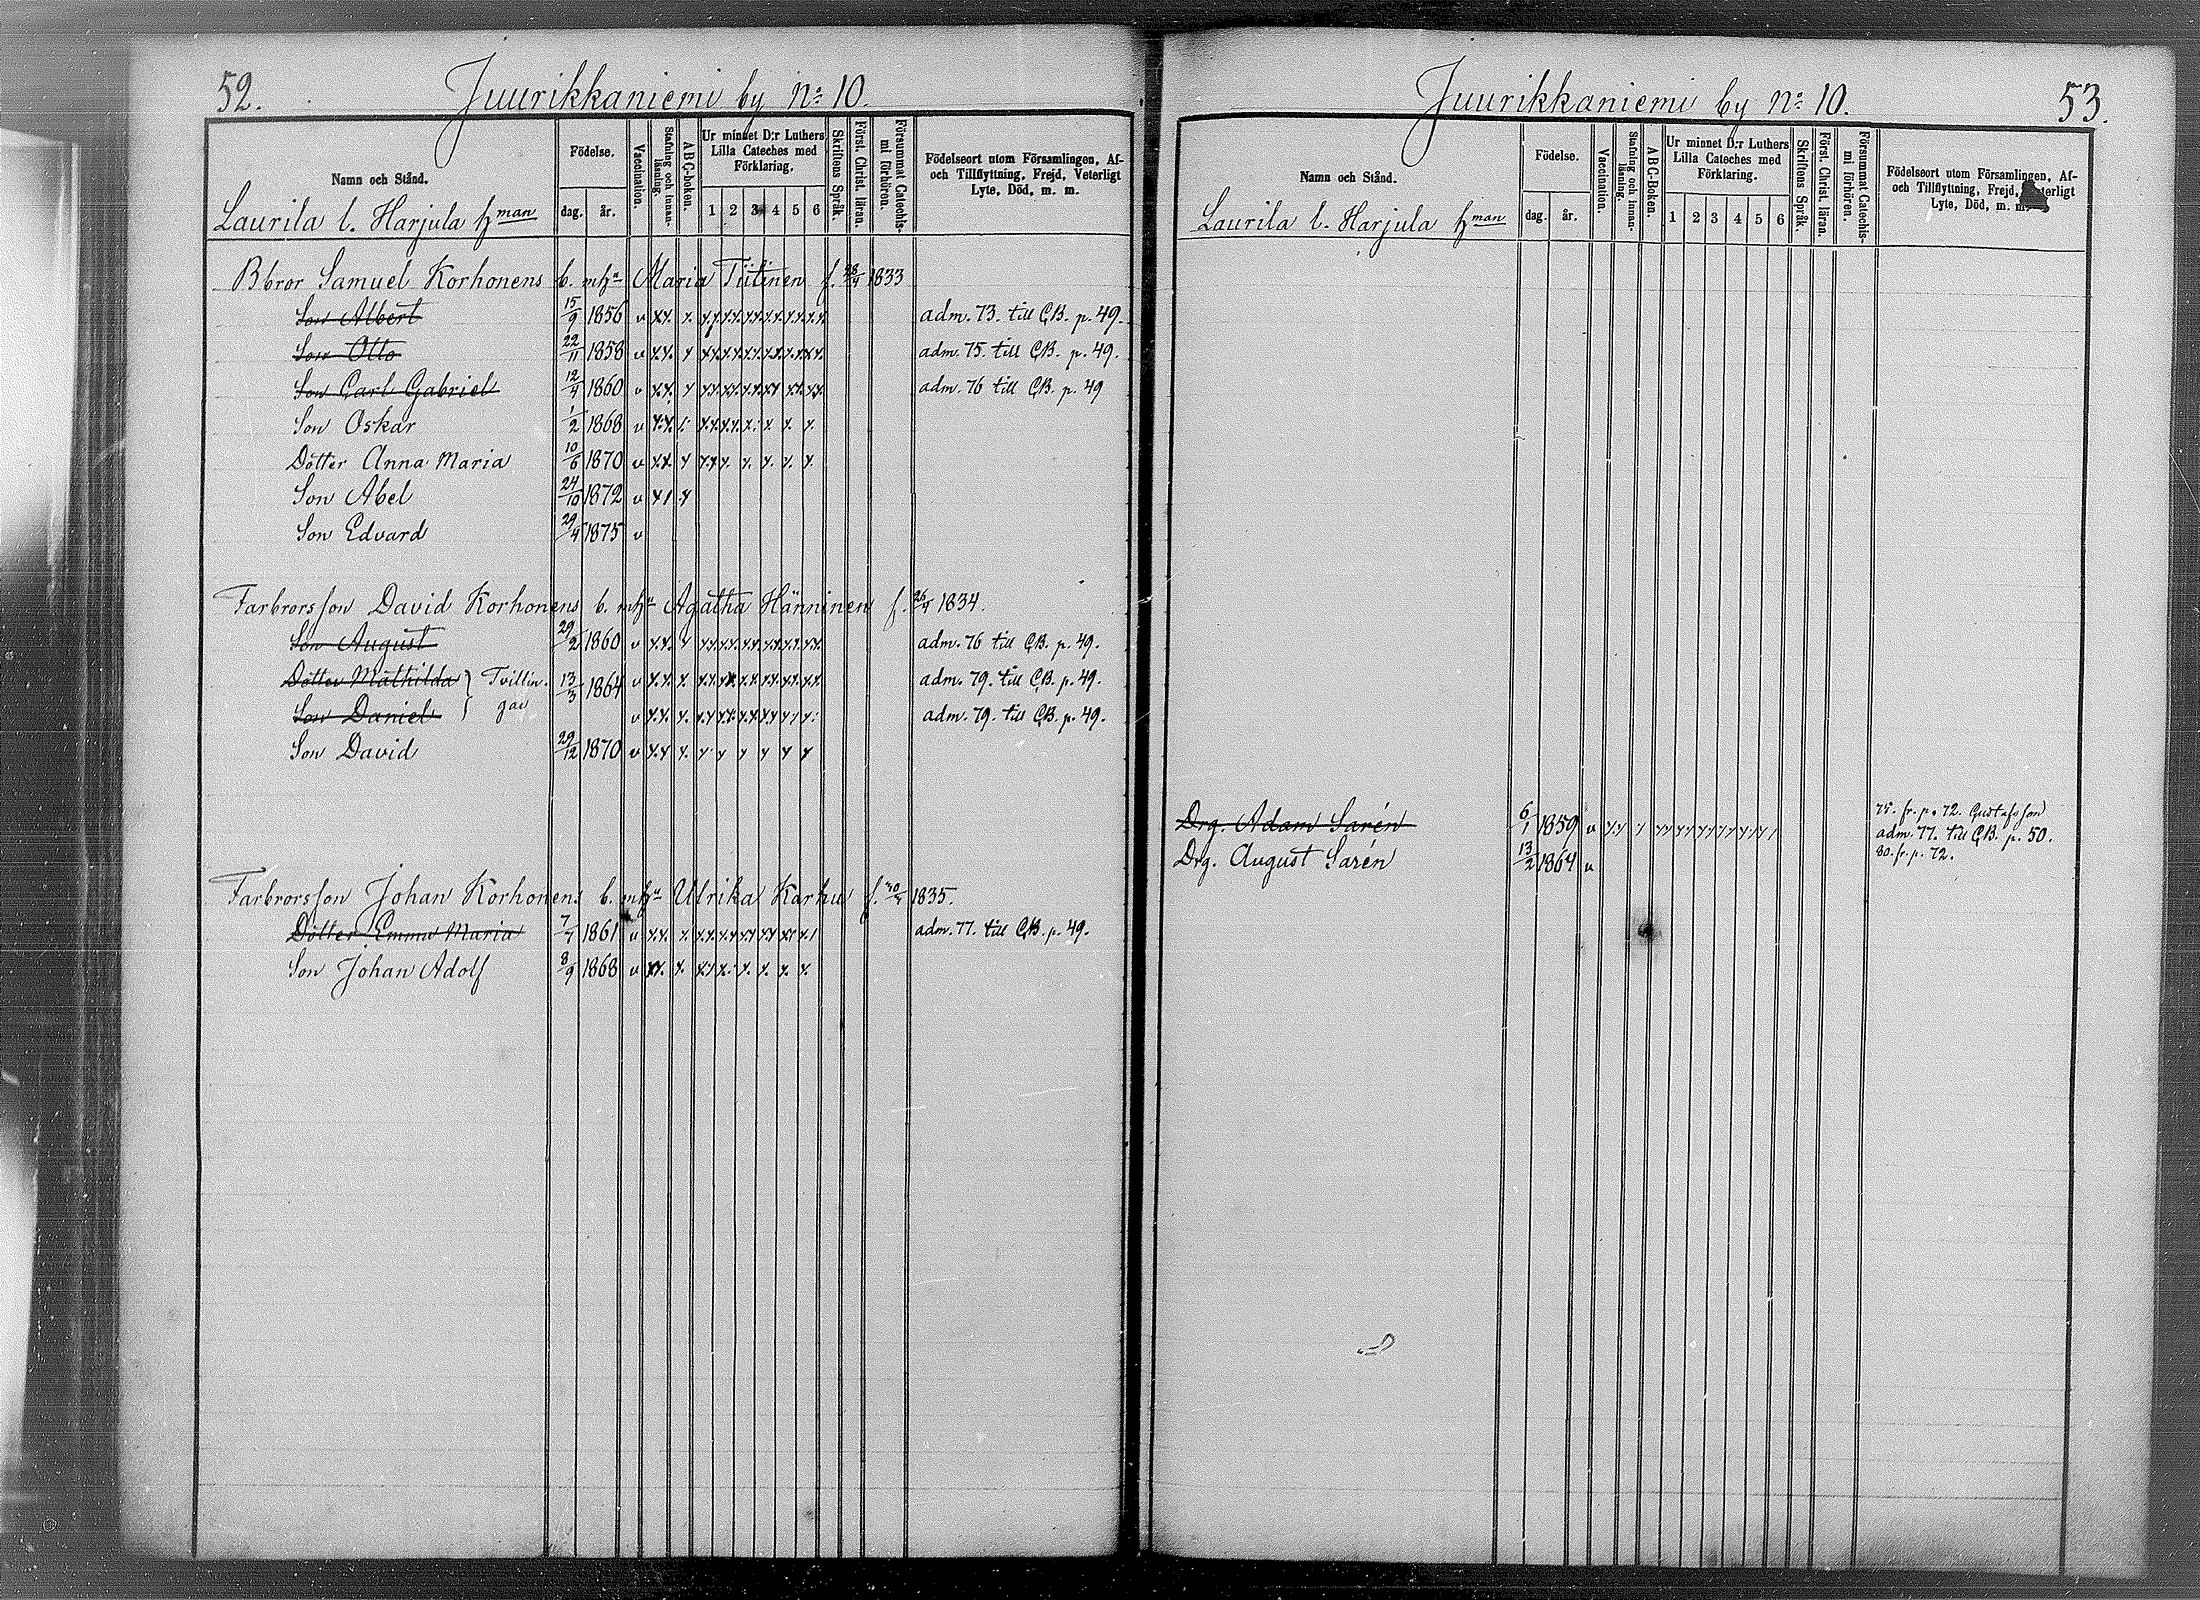 52.
Juurikkaniemi by No 10.
Namn och Stånd.
Födelse.
dag.
år.
Vaccination.
Stafning och innan-läsning.
ABC-boken.
Ur minnet D:r Luthers Lilla Cateches med Förklaring.
1 2 3 4 5 6
Skriftens Språk.
Först. Christ. läran.
Försummat Catechis-mi förhören.
Födelseort utom Församlingen, Af-
och Tillflyttning, Frejd, Veterligt
Lyte, Död, m. m.
Laurila l. Harjula hman
Bbror Samuel Korhonens b. mhn Maria Tiitinen f. 28/4 1833
Son Albert 15/9 1856 v adm. 73. till C.B. p. 49.
Son Otto 22/11 1858 v adm. 75. till C.B. p. 49.
Son Carl Gabriel 12/4 1860 v adm. 76 till C.B. p. 49
Son Oskar 1/2 1868 v
Dotter Anna Maria 10/6 1870 v
Son Abel 24/10 1872 v
Son Edvard 29/4 1875 v
Farbrorsson David Korhonens b. mhn Agatha Hänninen f. 26/4 1834.
Son August 29/2 1860 v adm. 76 till C.B. p. 49.
Dotter Mathilda } Tvillin- 13/3 1864 v adm. 79. till C.B. p. 49.
Son Daniel } gar v adm. 79. till C.B. p. 49.
Son David 29/12 1870 v
Farbrorsson Johan Korhonens b. mhn Ulrika Karhu f. 1835.
Dotter Emma Maria 7/7 1861 v adm. 77. till C.B. p. 49.
Son Johan Adolf 8/9 1868 v
Juurikkaniemi by No 10.
53.
Namn och Stånd.
Födelse.
dag.
år.
Vaccination.
Stafning och innan-läsning.
ABC-Boken.
Ur minnet D:r Luthers Lilla Cateches med Förklaring.
1 2 3 4 5 6
Skriftens Språk.
Först. Christ. läran.
Försummat Catechis-mi förhören.
Födelseort utom Församlingen, Af-
och Tillflyttning, Frejd, Veterligt
Lyte, Död, m. m.
Laurila l. Harjula hman
75. fr. p. 72. Gustafsson
Drg. Adam Sarén 6/1 1859 v adm. 77. till C.B. p. 50.
Drg. August Sarén 13/2 1864 v 80. fr. p. 72.